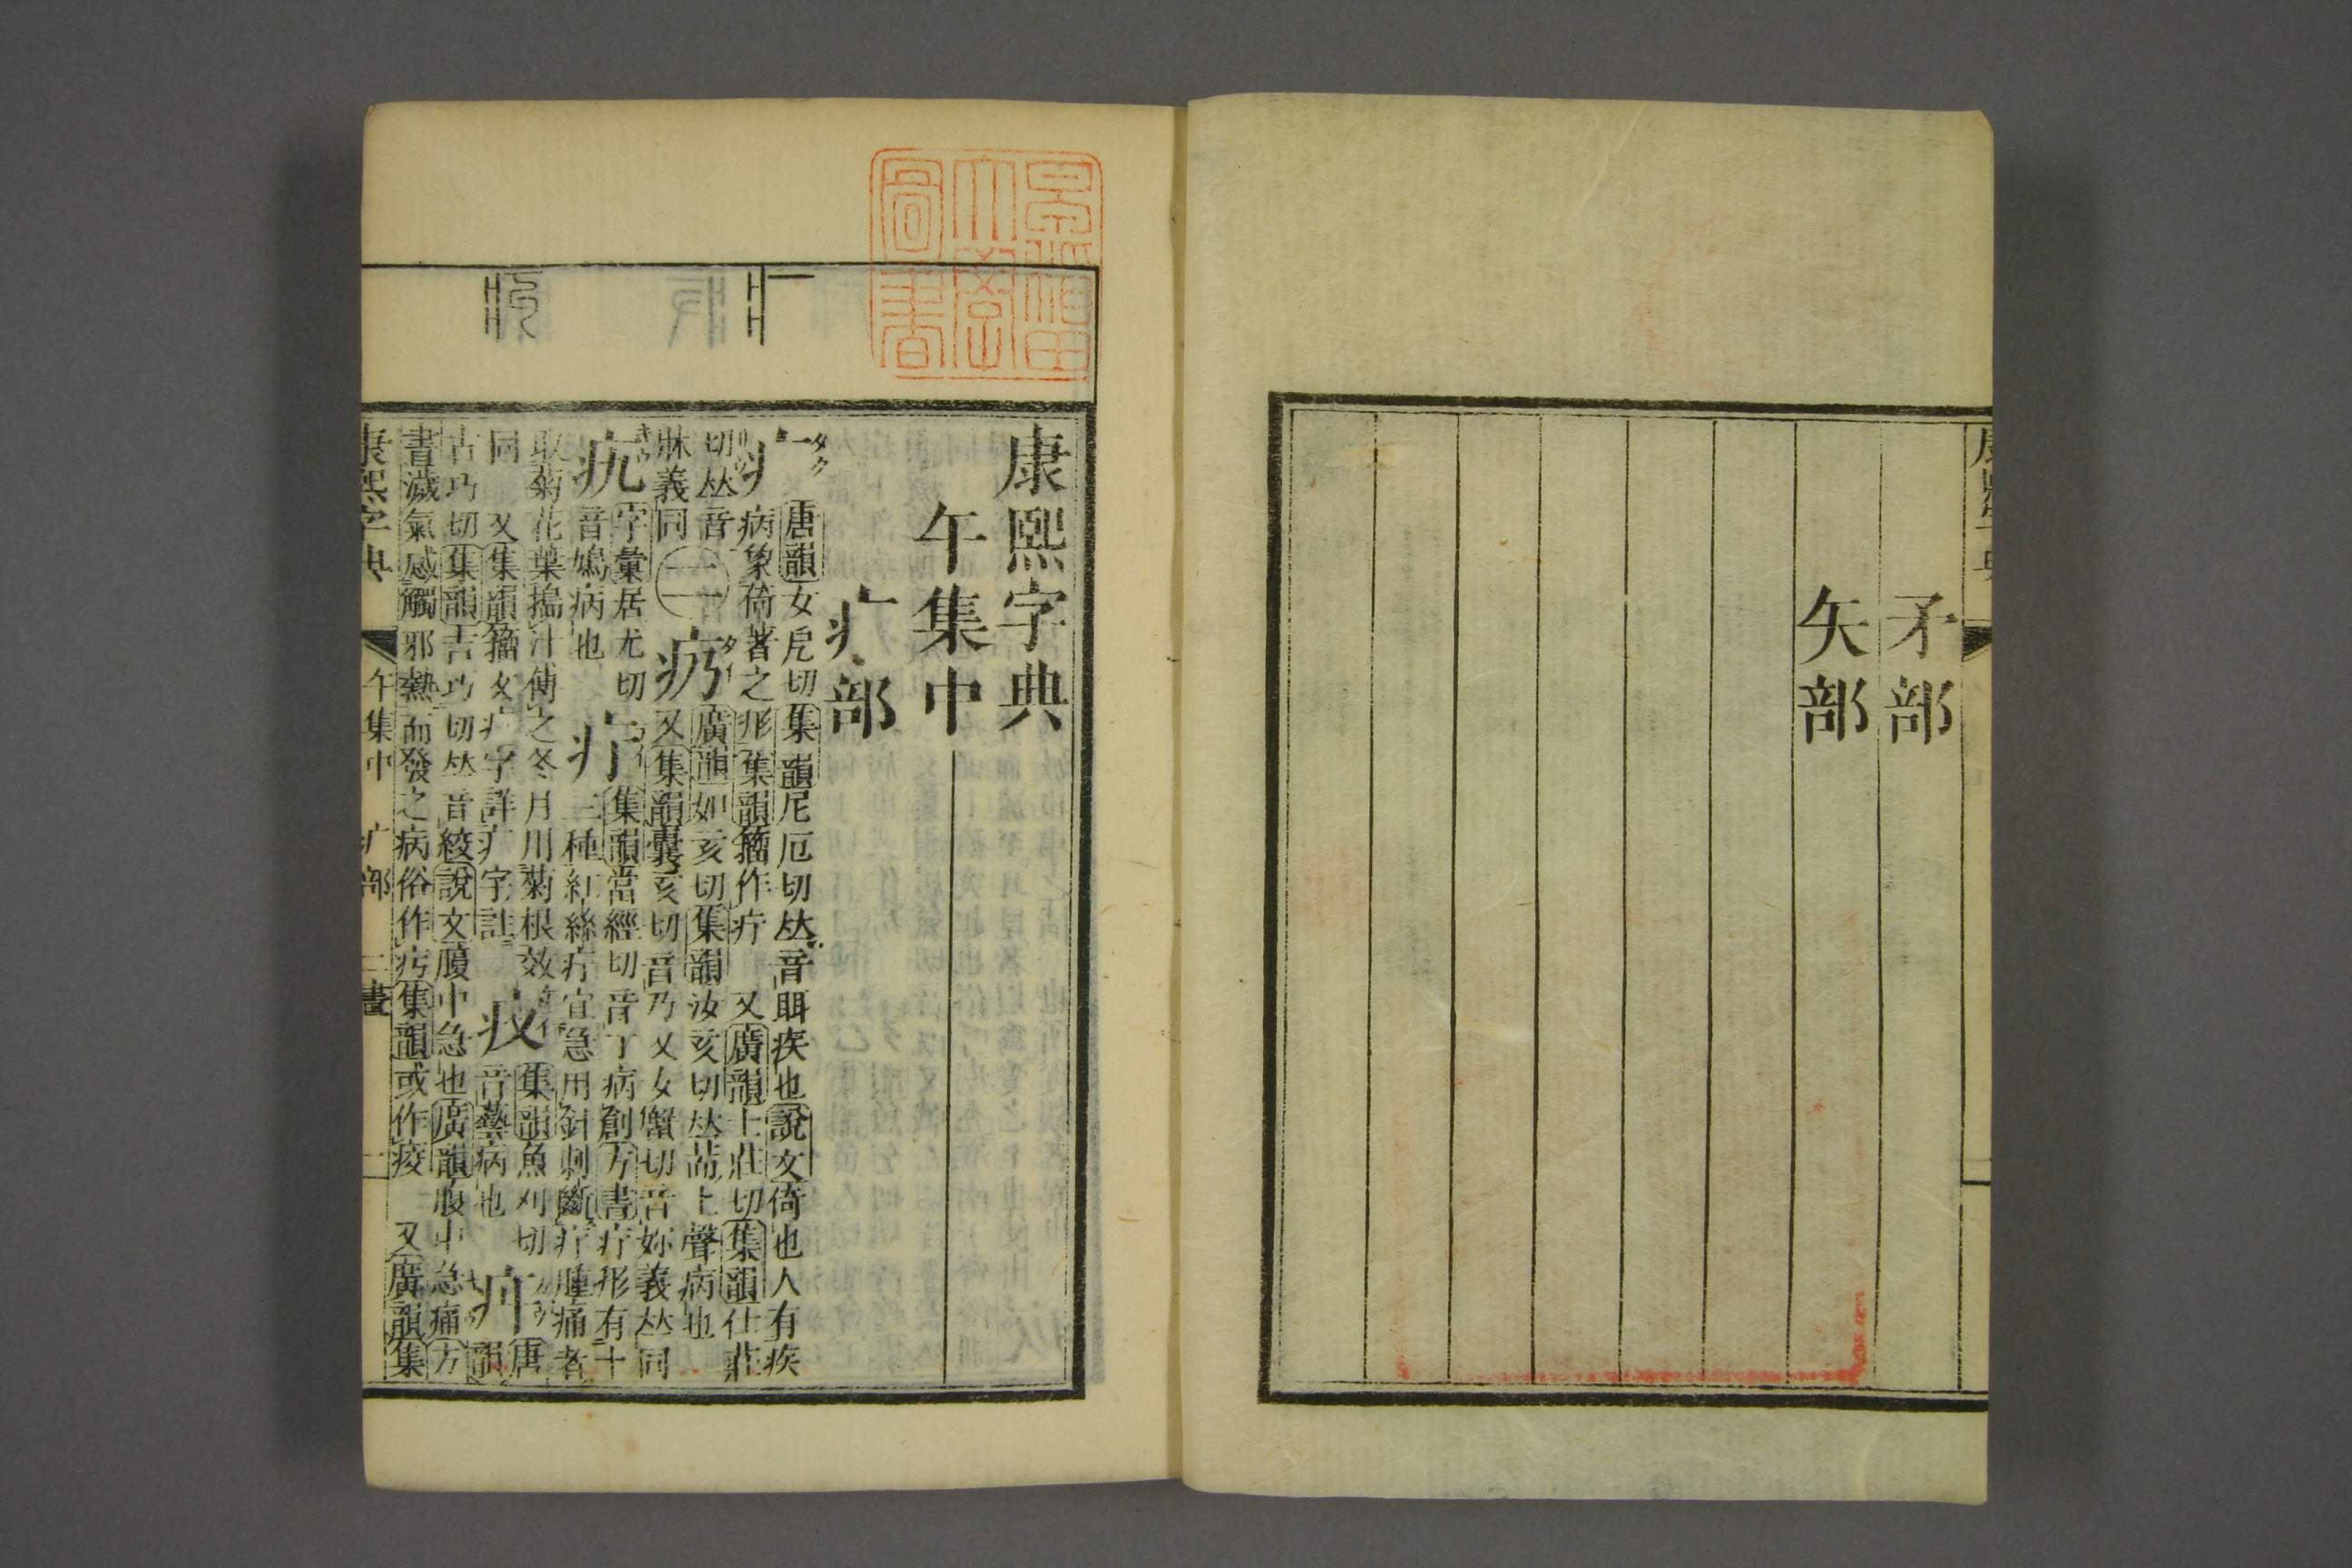 矛部
矢部
康熙字典
午集中
疒部
疒
唐韻女戹切集韻尼厄切𠀤音眲疾也說文倚也人有疾
病象倚著之形集韻籀作疔 又廣韻士莊切集韻仕莊
切𠀤音
牀義同
二
疓
廣韻如亥切集韻汝亥切𠀤上聲病也
又集韻囊亥切音乃又女蟹切音妳義𠀤同
字彙居尤切
音鳩病也
疔
集韻當經切音丁病創方書疔形有十
三種紅絲疔宜急用針刺斷疔腫痛者
取菊花葉搗汁傅之冬月用菊根效
同 又集韻籀文疒字詳疒字註
集韻魚刈切
音藝病也
㽱
唐
韻
古巧切集韻吉巧切𠀤音絞說文腹中急也廣韻腹中急痛方
書濊氣感觸邪熱而發之病俗作疞集韻或作 又廣韻集
康熙字典 午集中 疒部 二畫 二
早稻田大學圖書